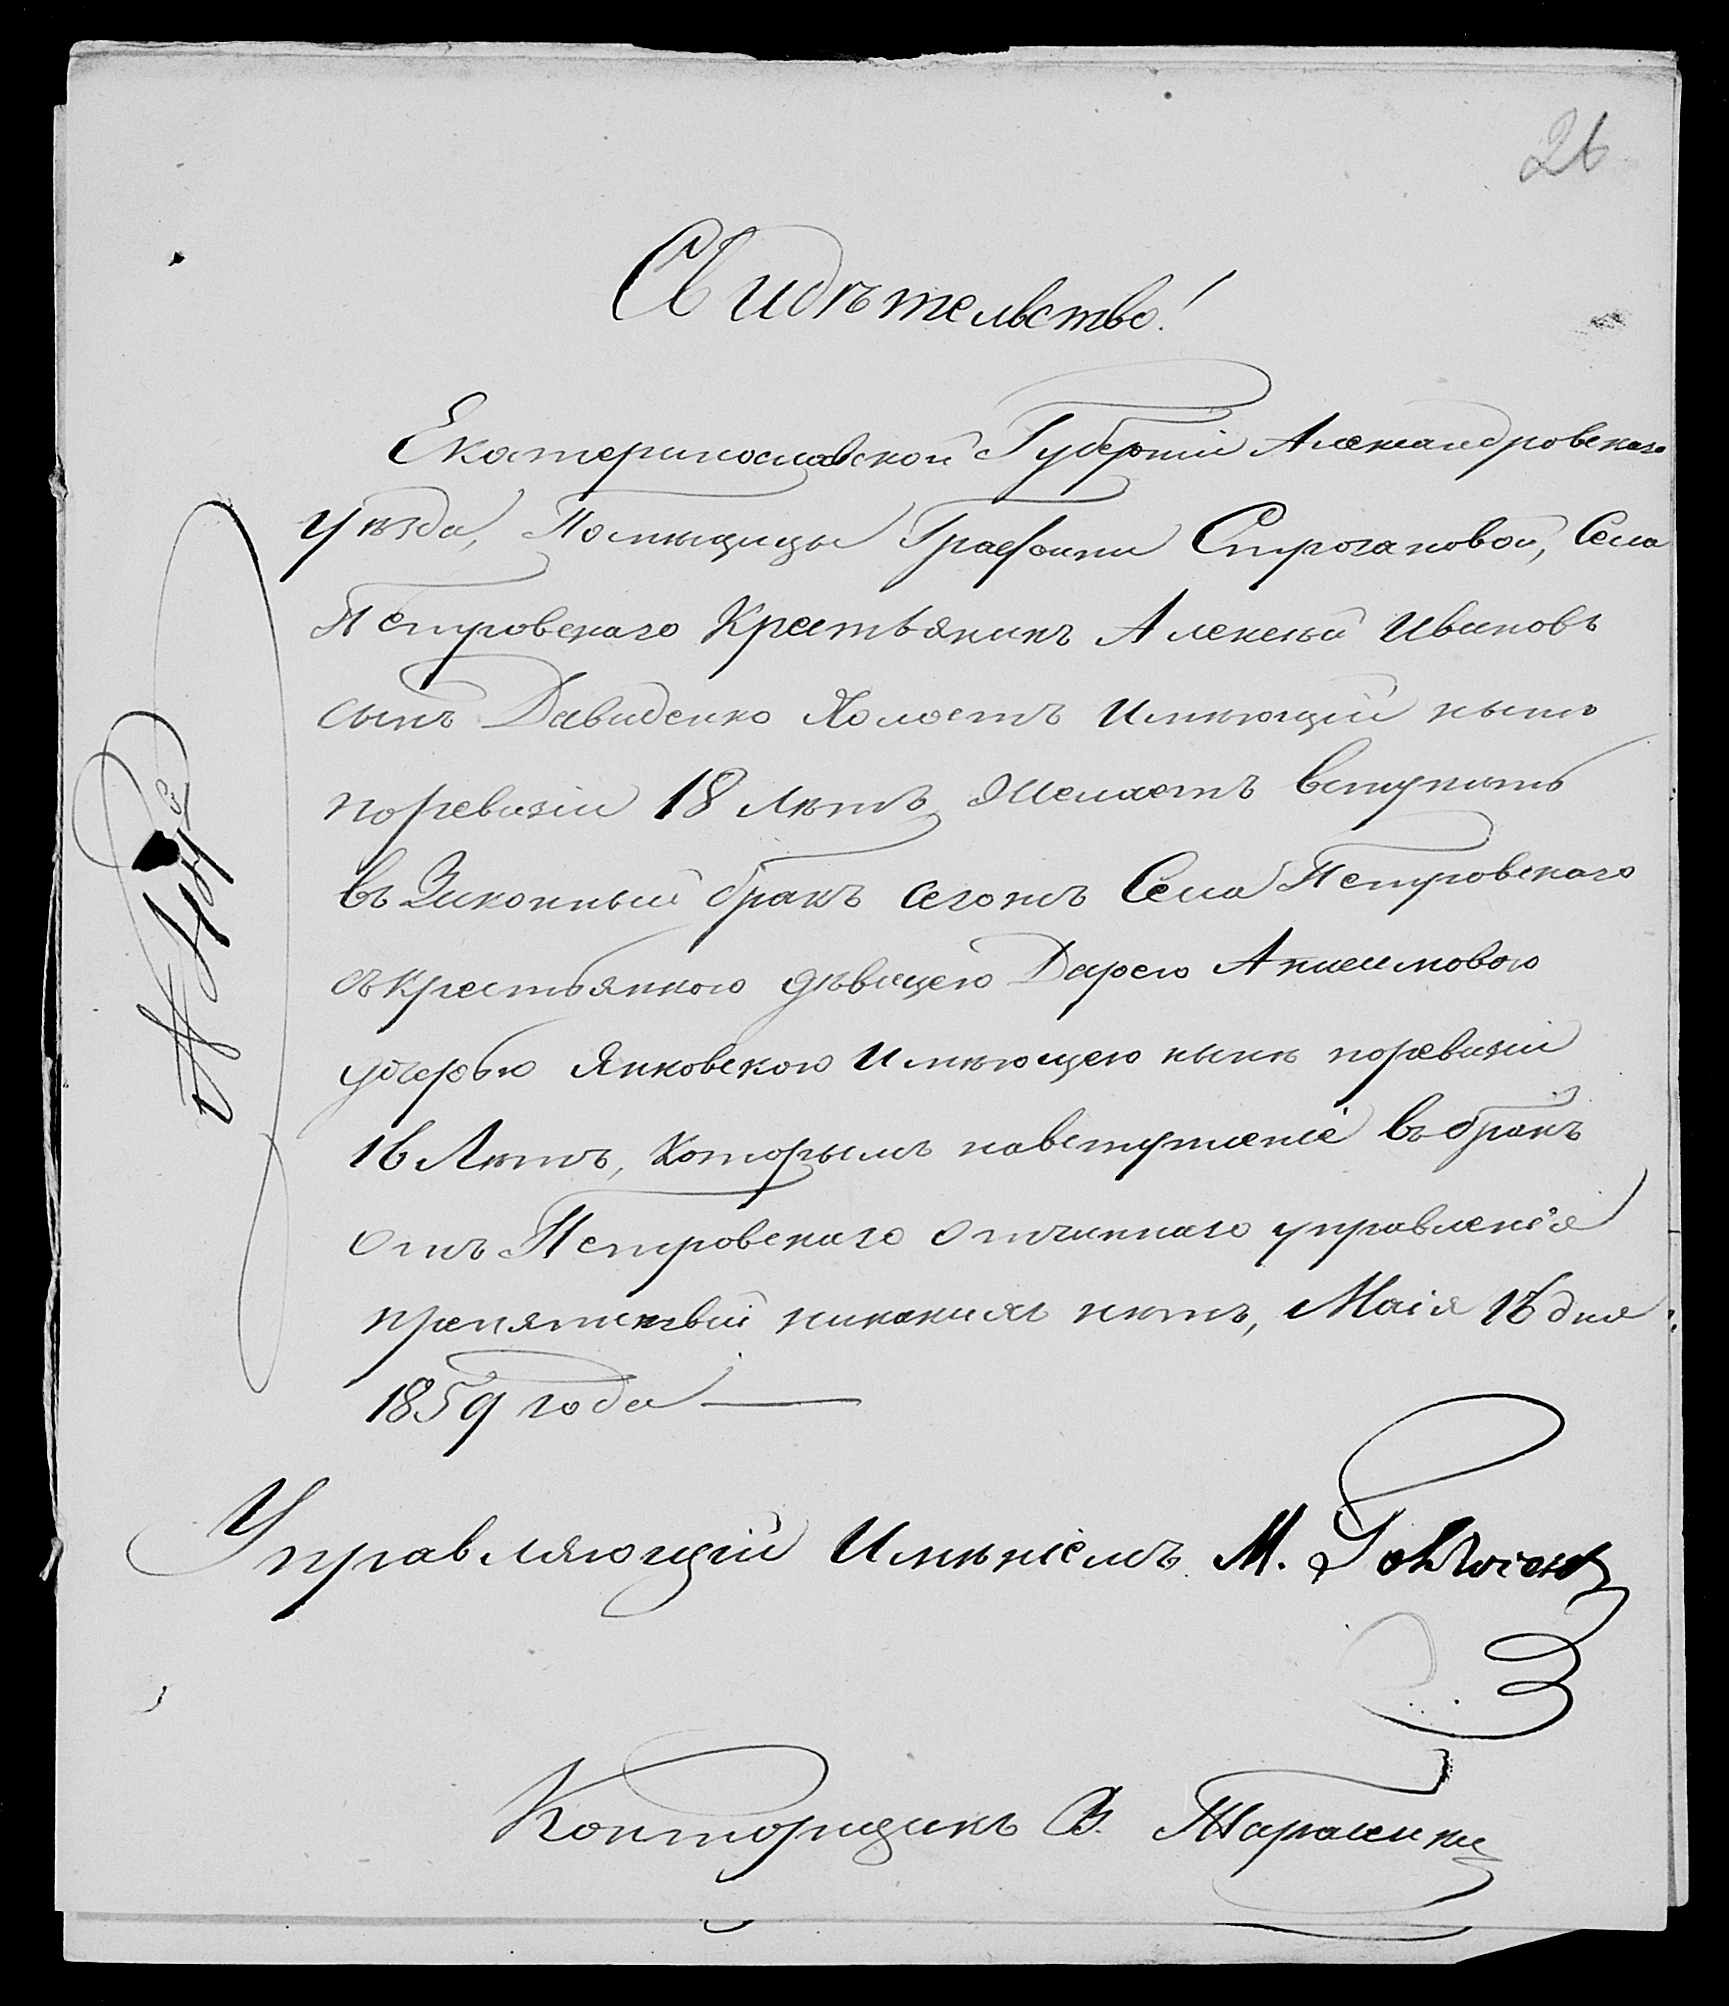 26
Свидѣтельство!
Екатеринославской Губерніи Александровскаго
Уѣзда, Помѣщицы Графини Строгановой, Села
Петровскаго Крестьянинъ Алексѣй Ивановъ
сынъ Давиденко Холостъ Имѣющій нынѣ
поревизіи 18 Лѣтъ, Желаетъ вступить
въ Законный бракъ сегожъ Села Петровскаго
съ крестьянкою дѣвицею Дарею Анисимовою
дочерью Янковскою Имѣющею нынѣ поревизіи
16 Лѣтъ, Которымъ навступленіе въ бракъ
Отъ Петровскаго Отчиннаго управленія
препятствій никакихъ нѣтъ, Маія 16 дня
1859 года
Управляющій Имѣніемъ М.
Конторщикъ В.
№ 44